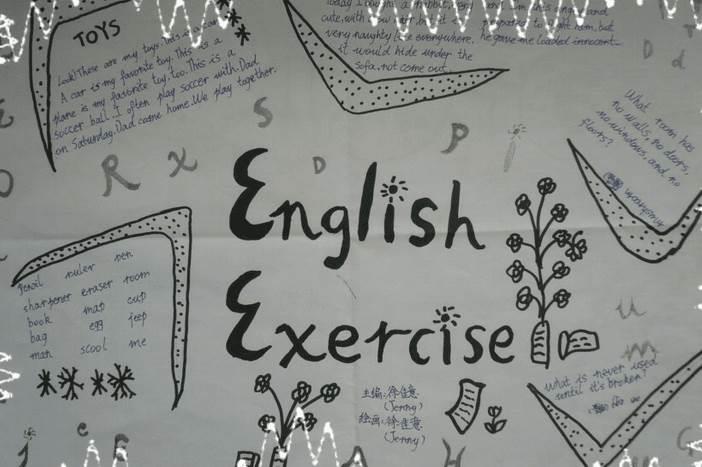 TOYS
Look! These are my toys. This is a car.
A car is my favorite toy. This is a
plane is my fastoite toy, too. This is a
soccer ball. I often play soccer with. Dad
on Saturday. Dad came home. We play together.
Today I bought a rabbit, very
cute, with
very naughty everywhere,
it would hide under the
sofa, not come out.
he gave me loaded innocent
What room has
no walls, no doors,
no windows, and no
floors?
English
Exercise
pencil ruler pen
sharpener eraser room
book map cup
bag egg jeep
man scool me
What is never used
until it's broken?
主编:徐佳意
(Jenny)
绘画:徐佳意
(Jenny)
E
S
D
P
R
X
O
D
d
u
m
G
e
H